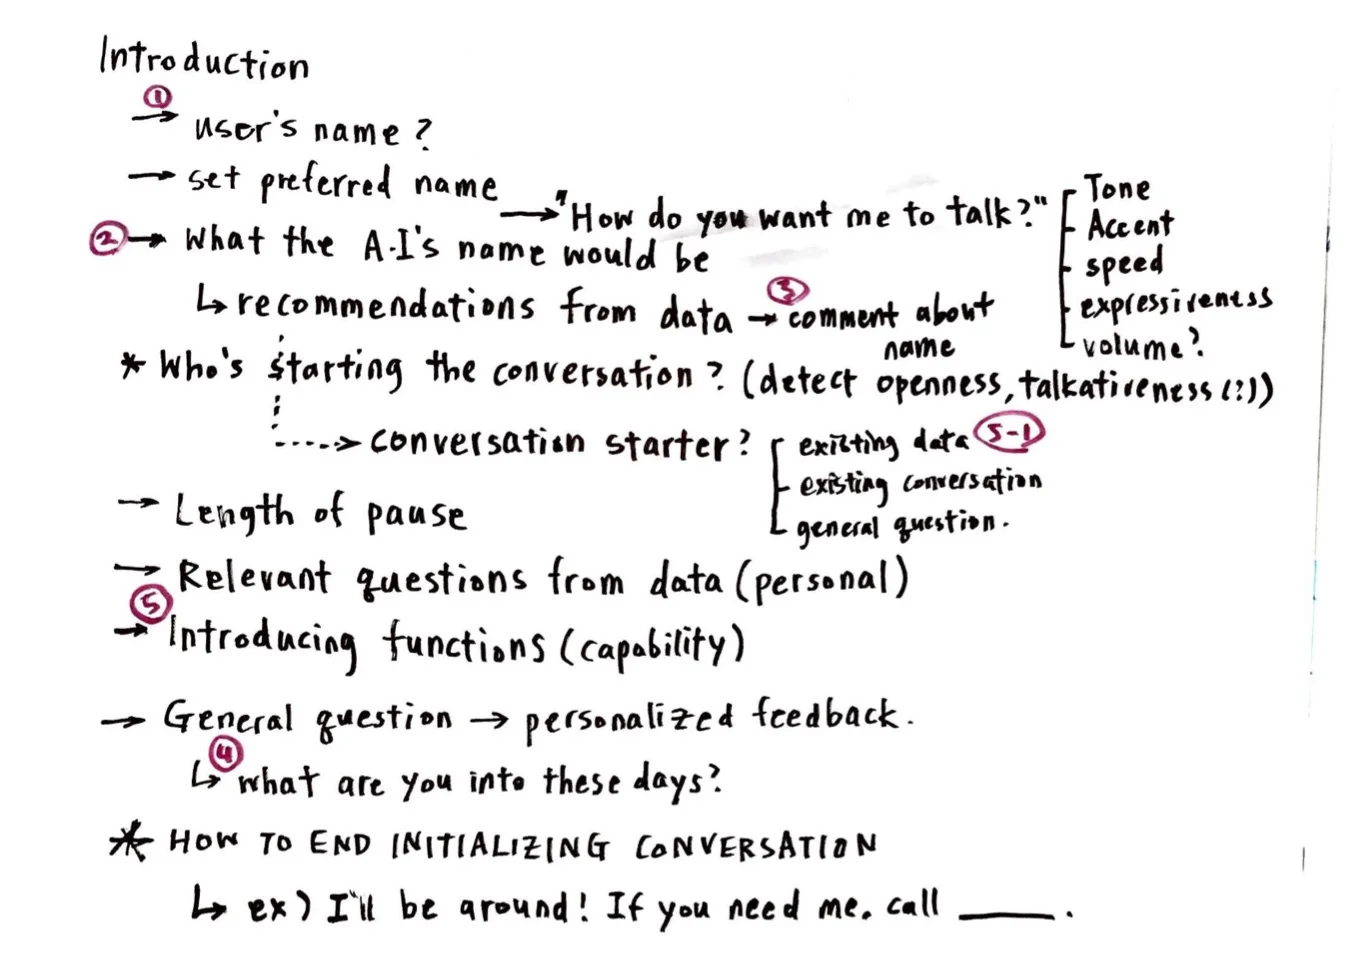 Introduction
① → user's name?
→ set preferred name → "How do you want me to talk?"
Tone
Accent
speed
expressiveness
volume?
② → What the A.I's name would be
↳ recommendations from data → ③ comment about name
* Who's starting the conversation? (detect openness, talkativeness (?))
⋯> conversation starter?
existing data 5-1
existing conversation
general question.
→ Length of pause
→ Relevant questions from data (personal)
⑤ → Introducing functions (capability)
→ General question → personalized feedback.
↳ ④ what are you into these days?
* HOW TO END INITIALIZING CONVERSATION
↳ ex) I'll be around! If you need me. call ____.